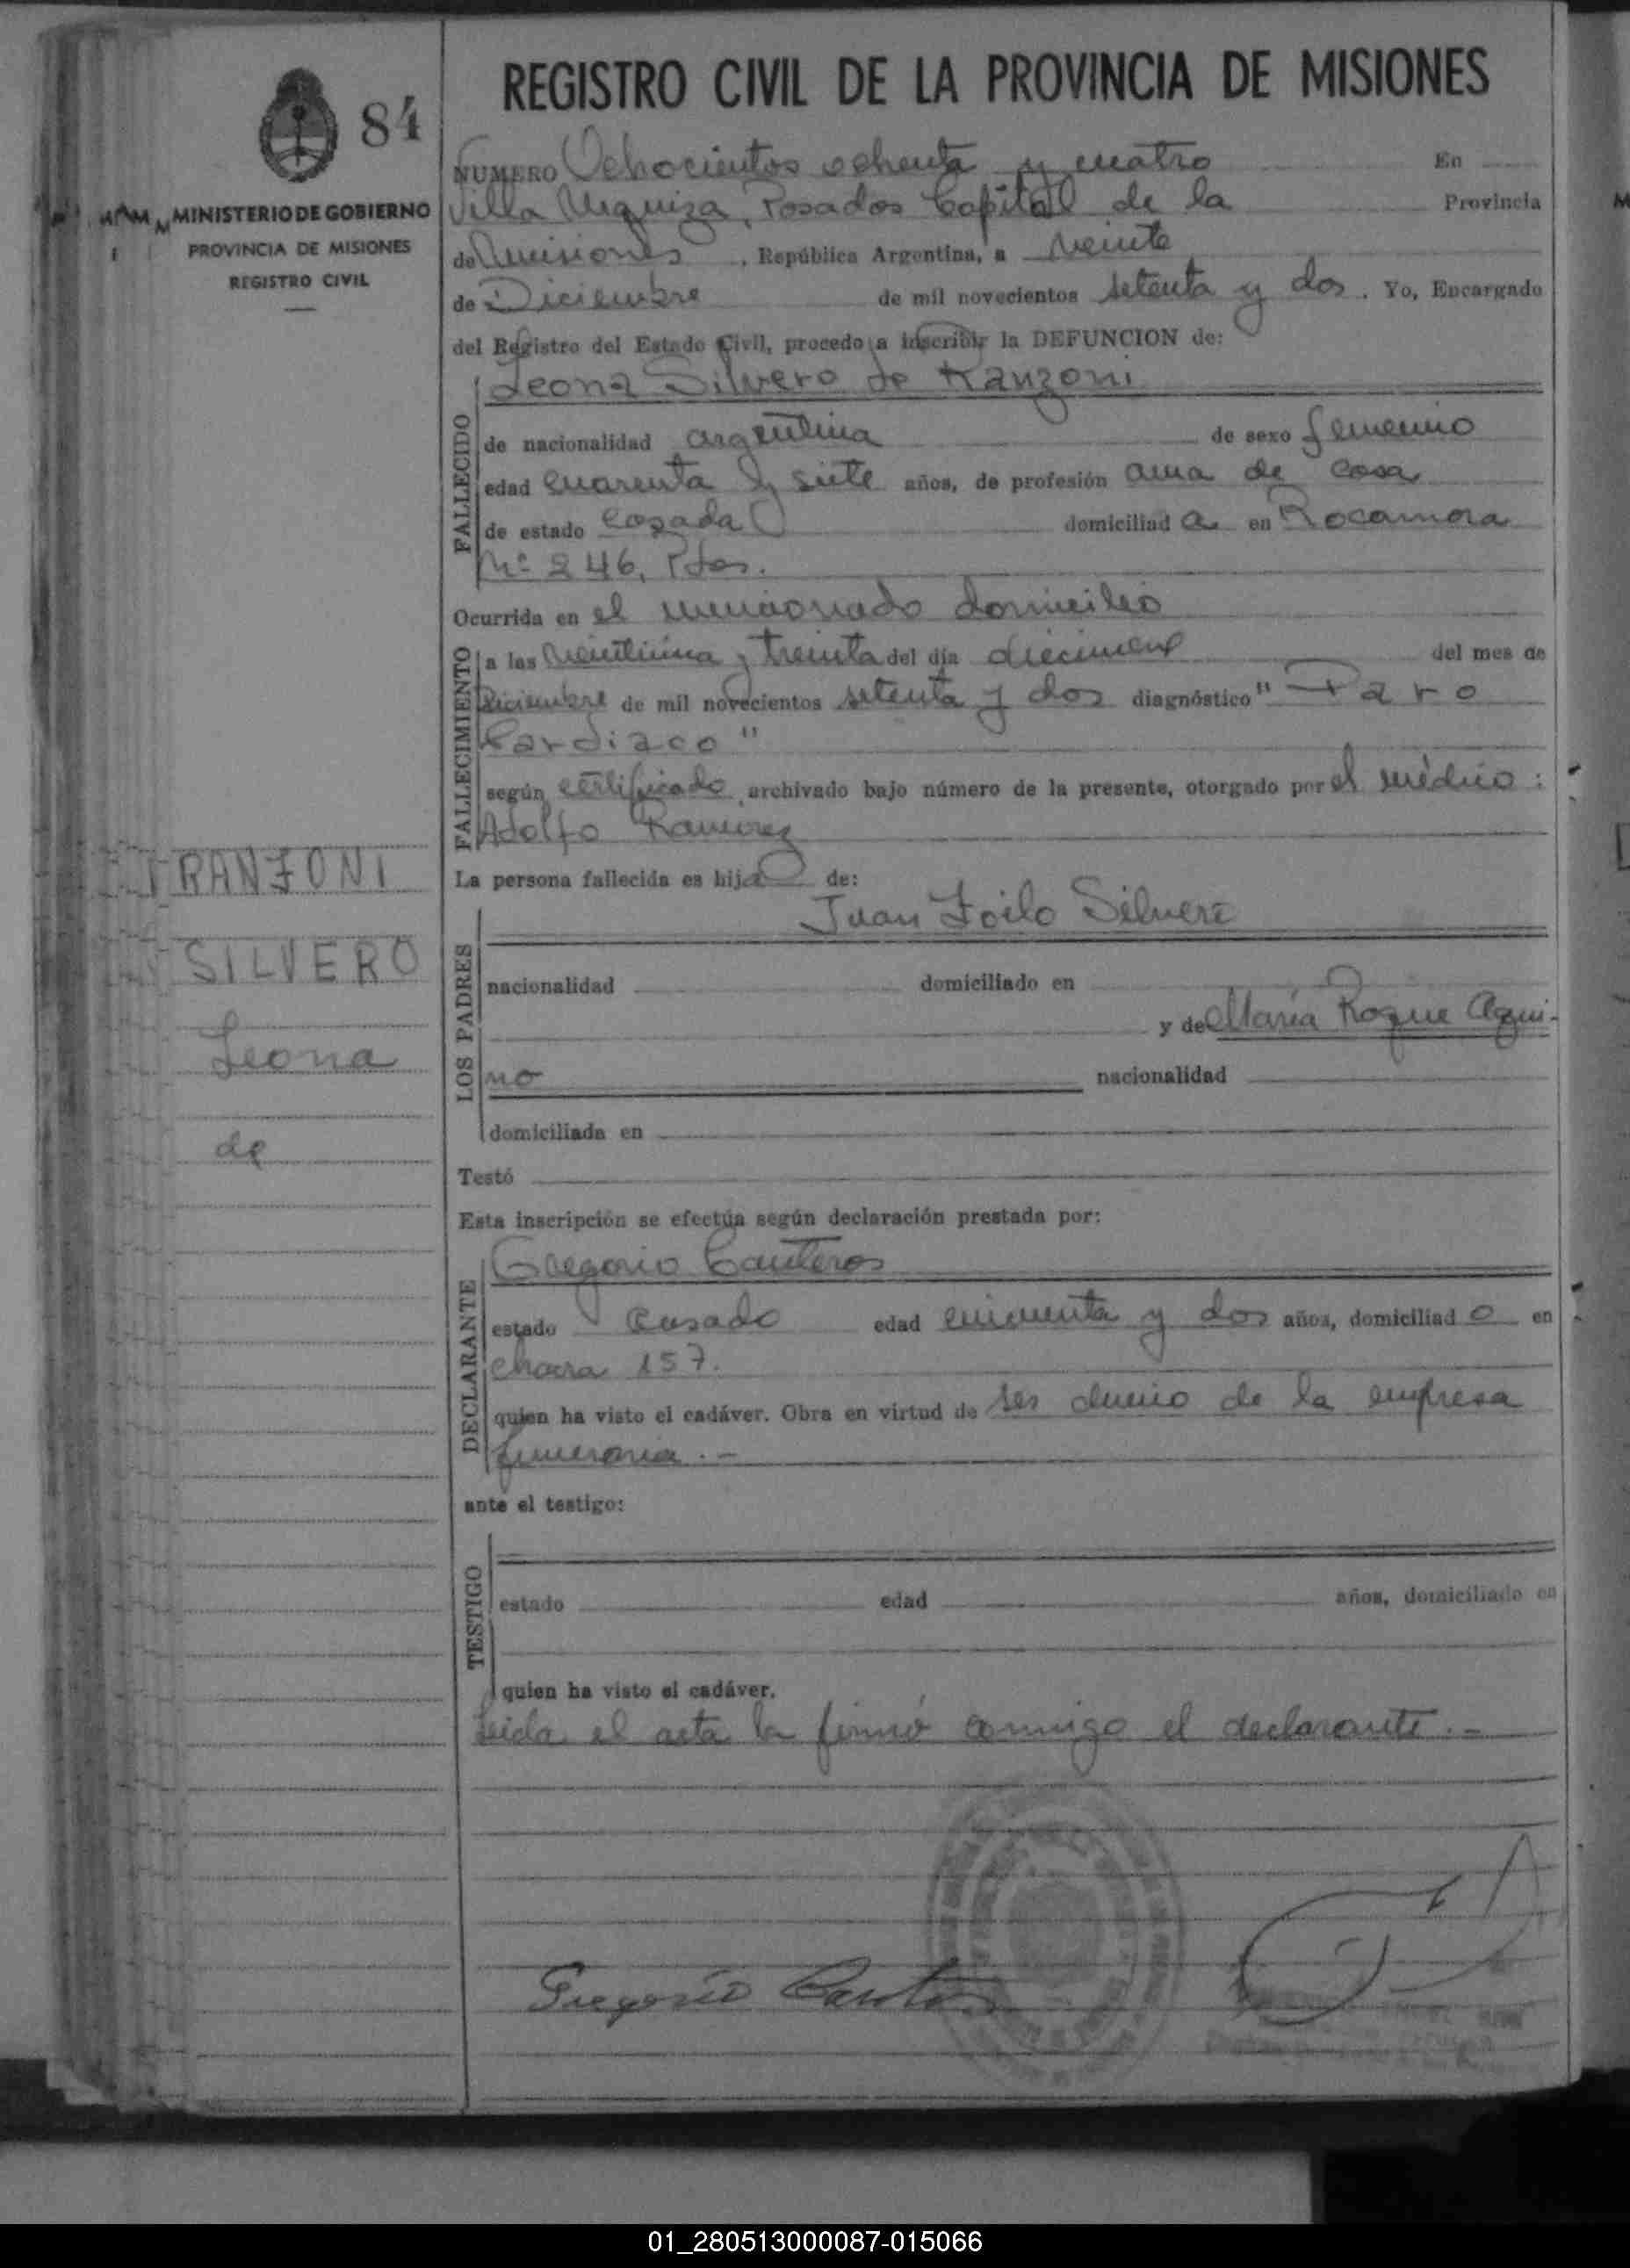 REGISTRO CIVIL DE LA PROVINCIA DE MISIONES
84
MINISTERIO DE GOBIERNO
PROVINCIA DE MISIONES
REGISTRO CIVIL
NUMERO Ochocientos ochenta y cuatro En
Villa Urquiza, Posadas Capital de la Provincia
de Misiones, República Argentina, a veinte
de Diciembre de mil novecientos setenta y dos. Yo, Encargado
del Registro del Estado Civil, procedo a inscribir la DEFUNCION de:
Leona Silvero de Ranzoni
FALLECIDO
de nacionalidad argentina de sexo femenino
edad cuarenta y siete años, de profesión ama de casa
de estado casada domiciliad a en Rocamora
Nº 246, Pdas.
Ocurrida en el mencionado domicilio
FALLECIMIENTO
a las veintiuna y treinta del día diecinueve del mes de
Diciembre de mil novecientos setenta y dos diagnóstico "Paro
Cardiaco"
según certificado archivado bajo número de la presente, otorgado por el médico:
Adolfo Ramirez
RANZONI
SILVERO
Leona
de
La persona fallecida es hija de:
LOS PADRES
Juan Zoilo Silvero
nacionalidad domiciliado en
y de María Roque Aqui-
no nacionalidad
domiciliada en
Testó
Esta inscripción se efectúa según declaración prestada por:
DECLARANTE
Gregorio Canteros
estado casado edad cincuenta y dos años, domiciliad o en
chacra 157.
quien ha visto el cadáver. Obra en virtud de ser dueño de la empresa
funeraria.-
ante el testigo:
TESTIGO
estado edad años, domiciliado en
quien ha visto el cadáver.
Leida el acta la firmó conmigo el declarante.-
Gregorio
01_280513000087-015066